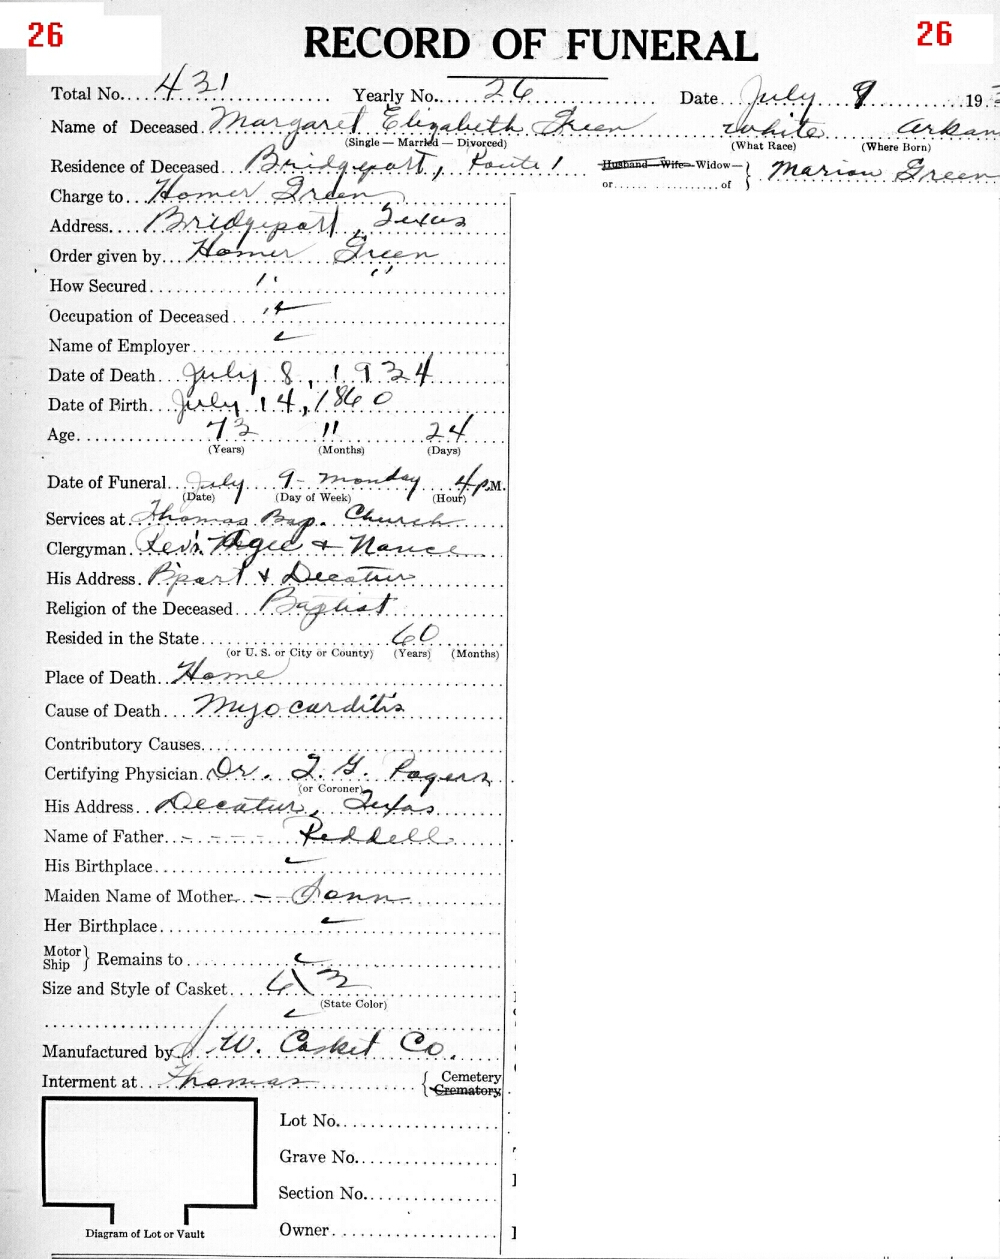 26 26
RECORD OF FUNERAL
Total No. 431 Yearly No. 26 Date July 9 19
Name of Deceased Margaret Elizabeth Green white Arkan
(Single — Married — Divorced) (What Race) (Where Born)
Residence of Deceased Bridgeport, Route 1 Husband Wife Widow— } Marion Green
or of
Charge to Homer Green
Address Bridgeport, Texas
Order given by Homer Green
How Secured " "
Occupation of Deceased
Name of Employer
Date of Death July 8, 1934
Date of Birth July 14, 1860
Age 73 11 24
(Years) (Months) (Days)
Date of Funeral July 9 - Monday 4 P.M.
(Date) (Day of Week) (Hour)
Services at Thomas Bap. Church
Clergyman Revs. & Nance
His Address B'port & Decatur
Religion of the Deceased Baptist
Resided in the State 60
(or U. S. or City or County) (Years) (Months)
Place of Death Home
Cause of Death Myocarditis
Contributory Causes
Certifying Physician Dr. T. G. Rogers
(or Coroner)
His Address Decatur, Texas
Name of Father - - - - Reddell
His Birthplace
Maiden Name of Mother - -
Her Birthplace
Motor
Ship } Remains to
Size and Style of Casket 6\3
(State Color)
Manufactured by W. Casket Co.
Interment at Thomas { Cemetery
Crematory
Lot No.
Grave No.
Section No.
Owner
Diagram of Lot or Vault